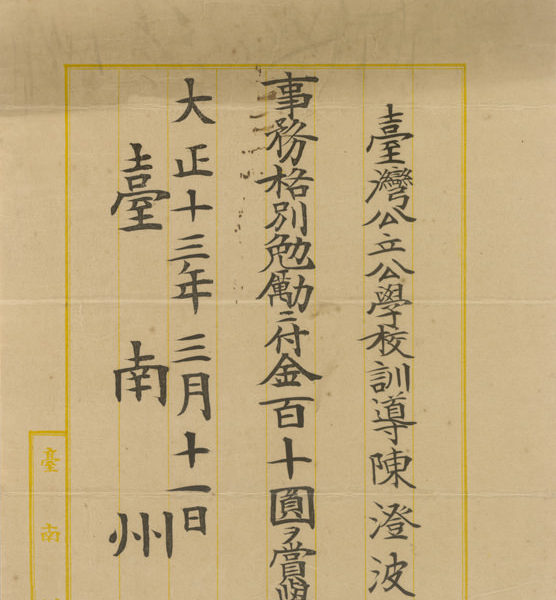 臺灣公立公學校訓導陳澄波
事務格別勉勵ニ付金百十圓ヲ賞與
大正十三年三月十一日
臺南州
臺南